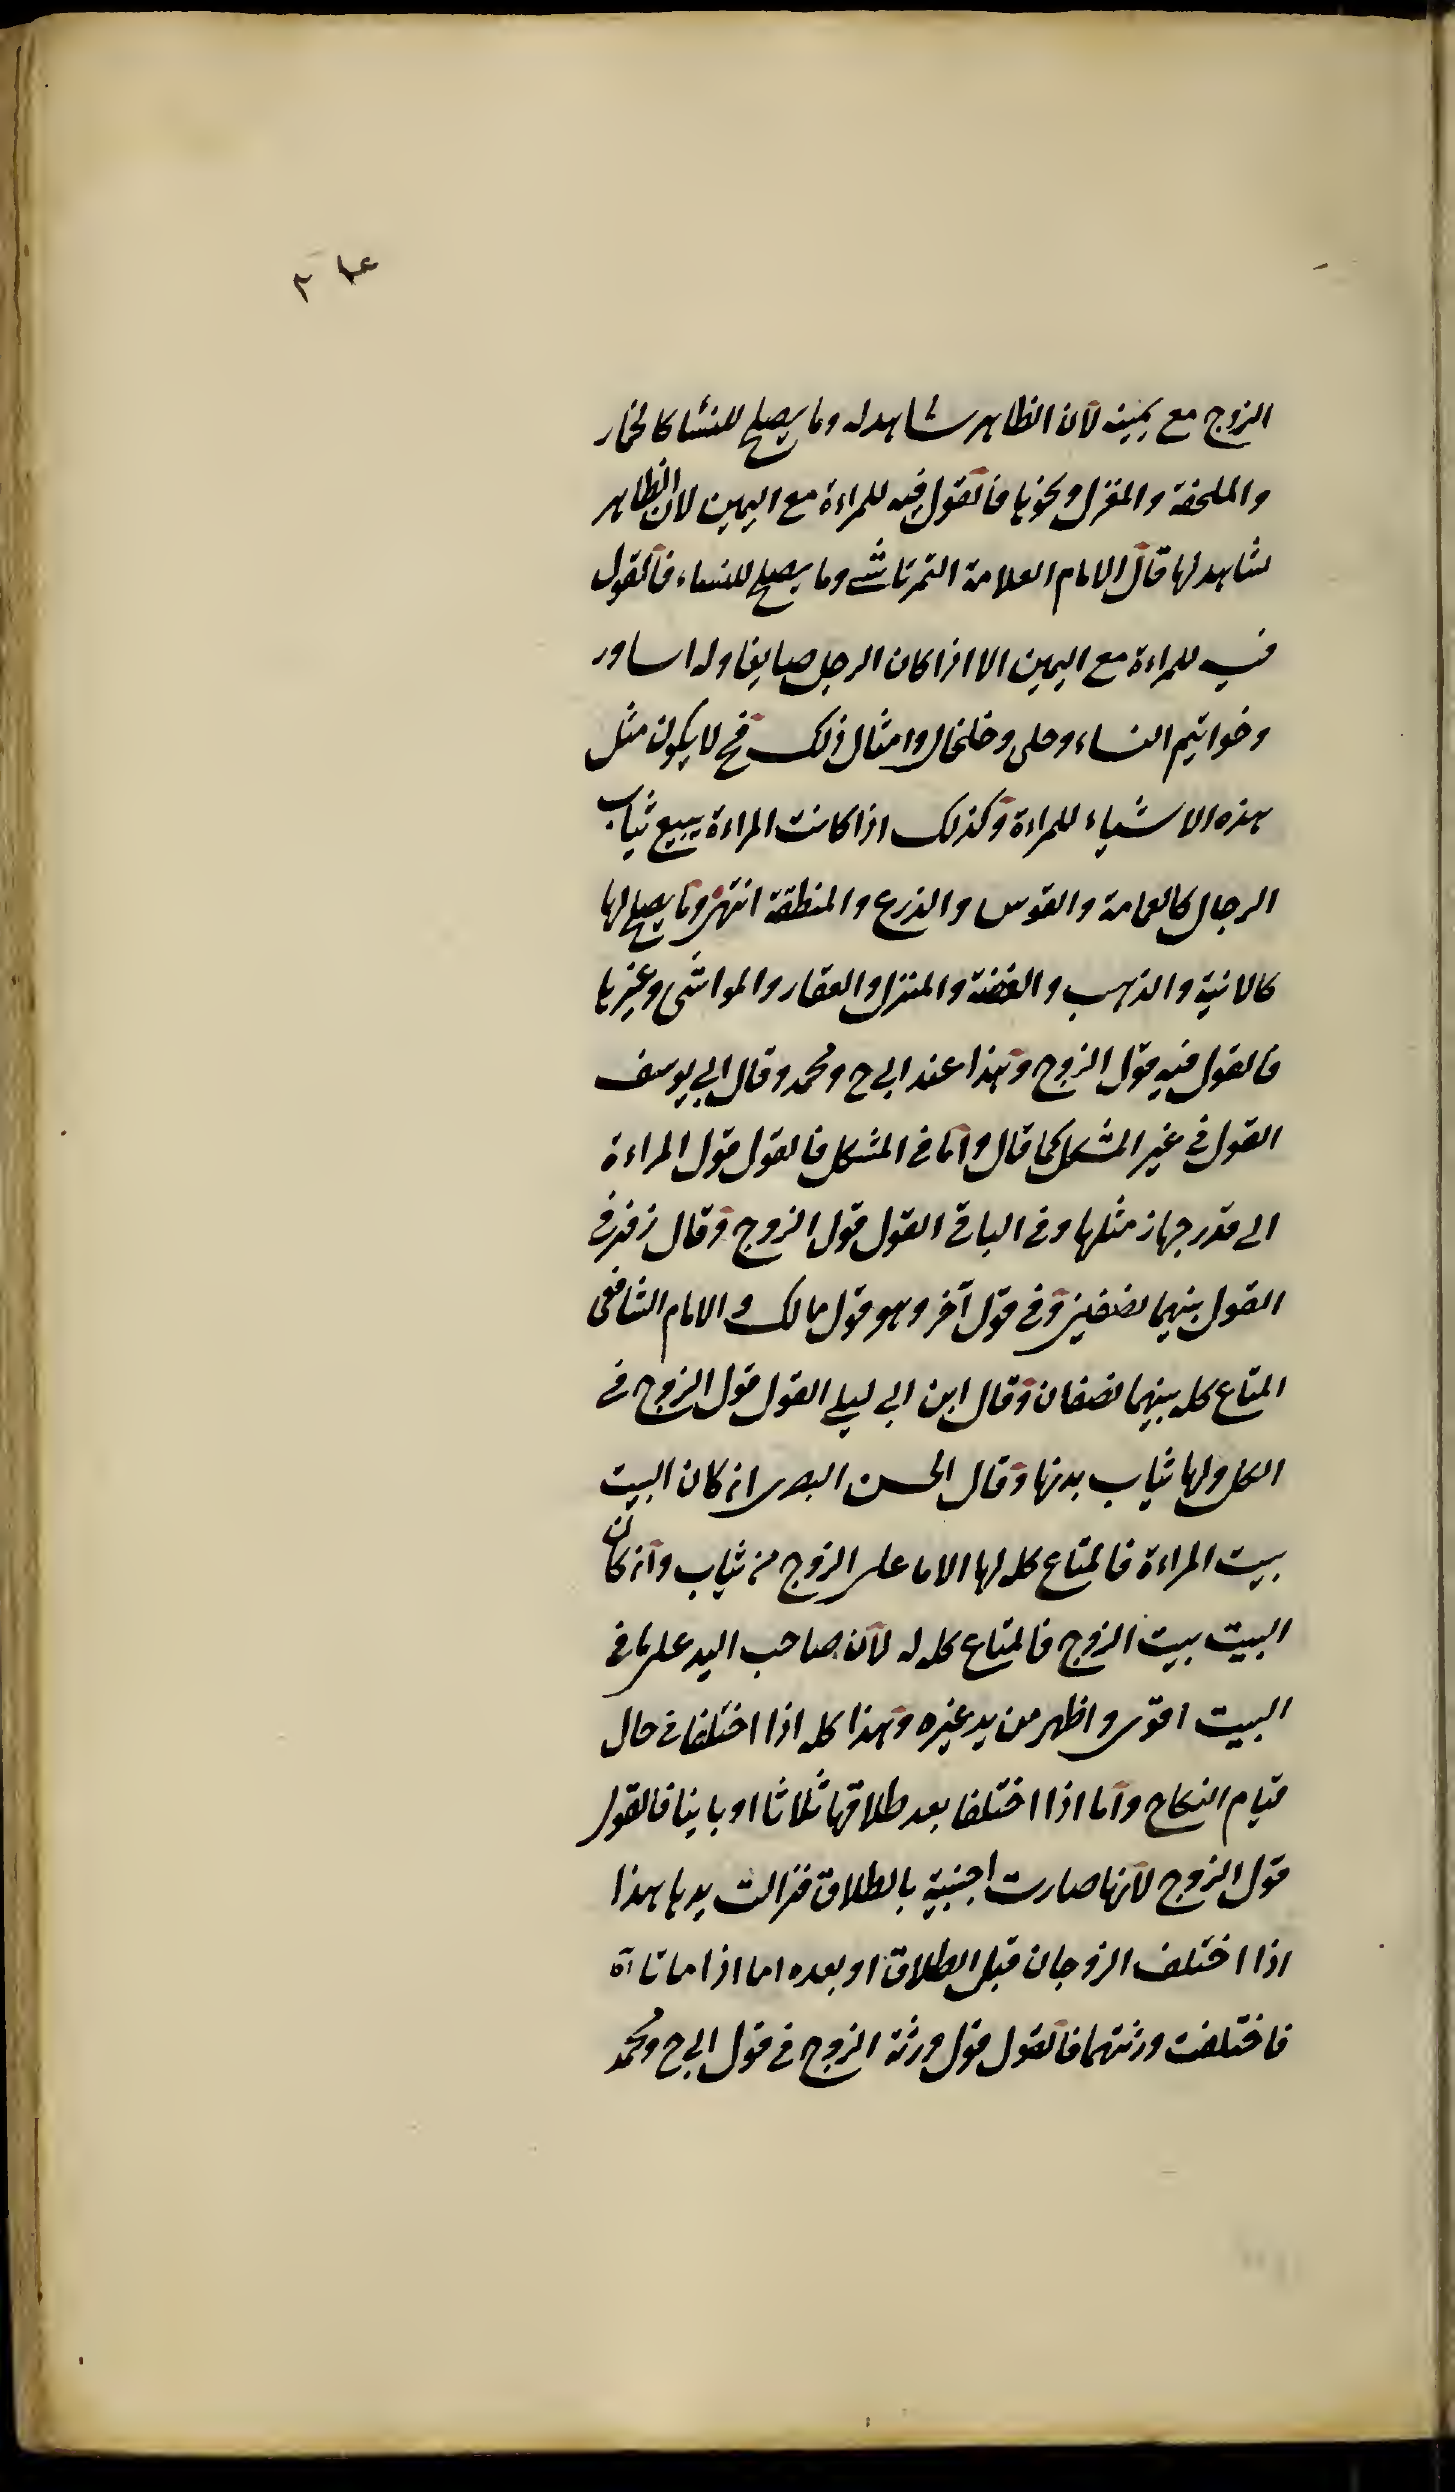 الزوج مع يمينه لان الظاهر شاهد له وما يصلح للنساء كالخمار
والملحفة والمغزل ونحوها فالقول فيه للمراءة مع اليمين لان الظاهر
شاهد لها قال الامام العلامة التمرتاشي وما يصلح للنساء فالقول
فيه للمراءة مع اليمين الا اذا كان الرجل صايغا وله اساور
وخواتيم النساء وحلي وخلخال وامثال ذلك فح لا يكون مثل
هذه الاشياء للمراءة وكذلك اذا كانت المراءة يبيع ثياب
الرجال كالعمامة والقوس والدرع والمنطقة انتهى وما يصلح لها
كالانية والذهب والفضة والمنزل والعقار والمواشى وغيرها
فالقول فيه قول الزوج وهذا عند ابي ح ومحمد وقال ابي يوسف
القول في غير المشكل كما قال واما في المشكل فالقول قول المراءة
الى قدر جهاز مثلها وفي الباقي القول قول الزوج وقال زفر في
القول بينهما نصفين وفي قول آخر وهو قول مالك والامام الشافعى
المتاع كله بينهما نصفان وقال ابن ابي ليلى القول قول الزوج في
الكل ولها ثياب بدنها وقال الحسن البصرى ان كان البيت
بيت المراءة فالمتاع كله لها الا ما على الزوج من ثياب وان كان
البيت بيت الزوج فالمتاع كله له لان صاحب اليد على ما في
البيت اقوى واظهر من يد غيره وهذا كله اذا اختلفا في حال
قيام النكاح واما اذا اختلفا بعد طلاقها ثلاثا او باينا فالقول
قول الزوج لانها صارت اجنبية بالطلاق فزالت يدها هذا
اذا اختلف الزوجان قبل الطلاق او بعده اما اذا ماتا
فاختلفت ورثتهما فالقول قول ورثة الزوج في قول ابي ح ومحمد